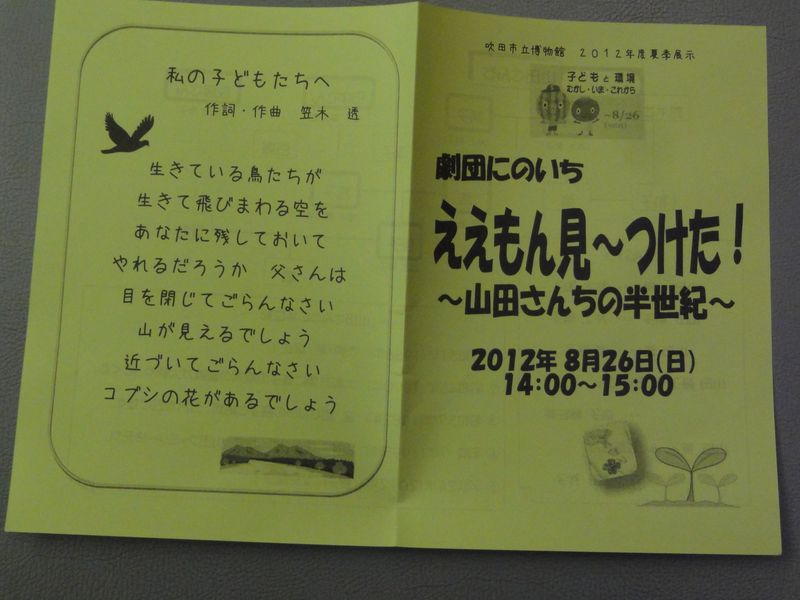 私の子どもたちへ
作詞・作曲　笠木　透
生きている鳥たちが
生きて飛びまわる空を
あなたに残しておいて
やれるだろうか　父さんは
目を閉じてごらんなさい
山が見えるでしょう
近づいてごらんなさい
コブシの花があるでしょう
吹田市立博物館　2012年度夏季展示
子どもと環境
むかし・いま・これから
～8/26
劇団にのいち
ええもん見～つけた！
～山田さんちの半世紀～
2012年 8月26日(日)
14:00～15:00